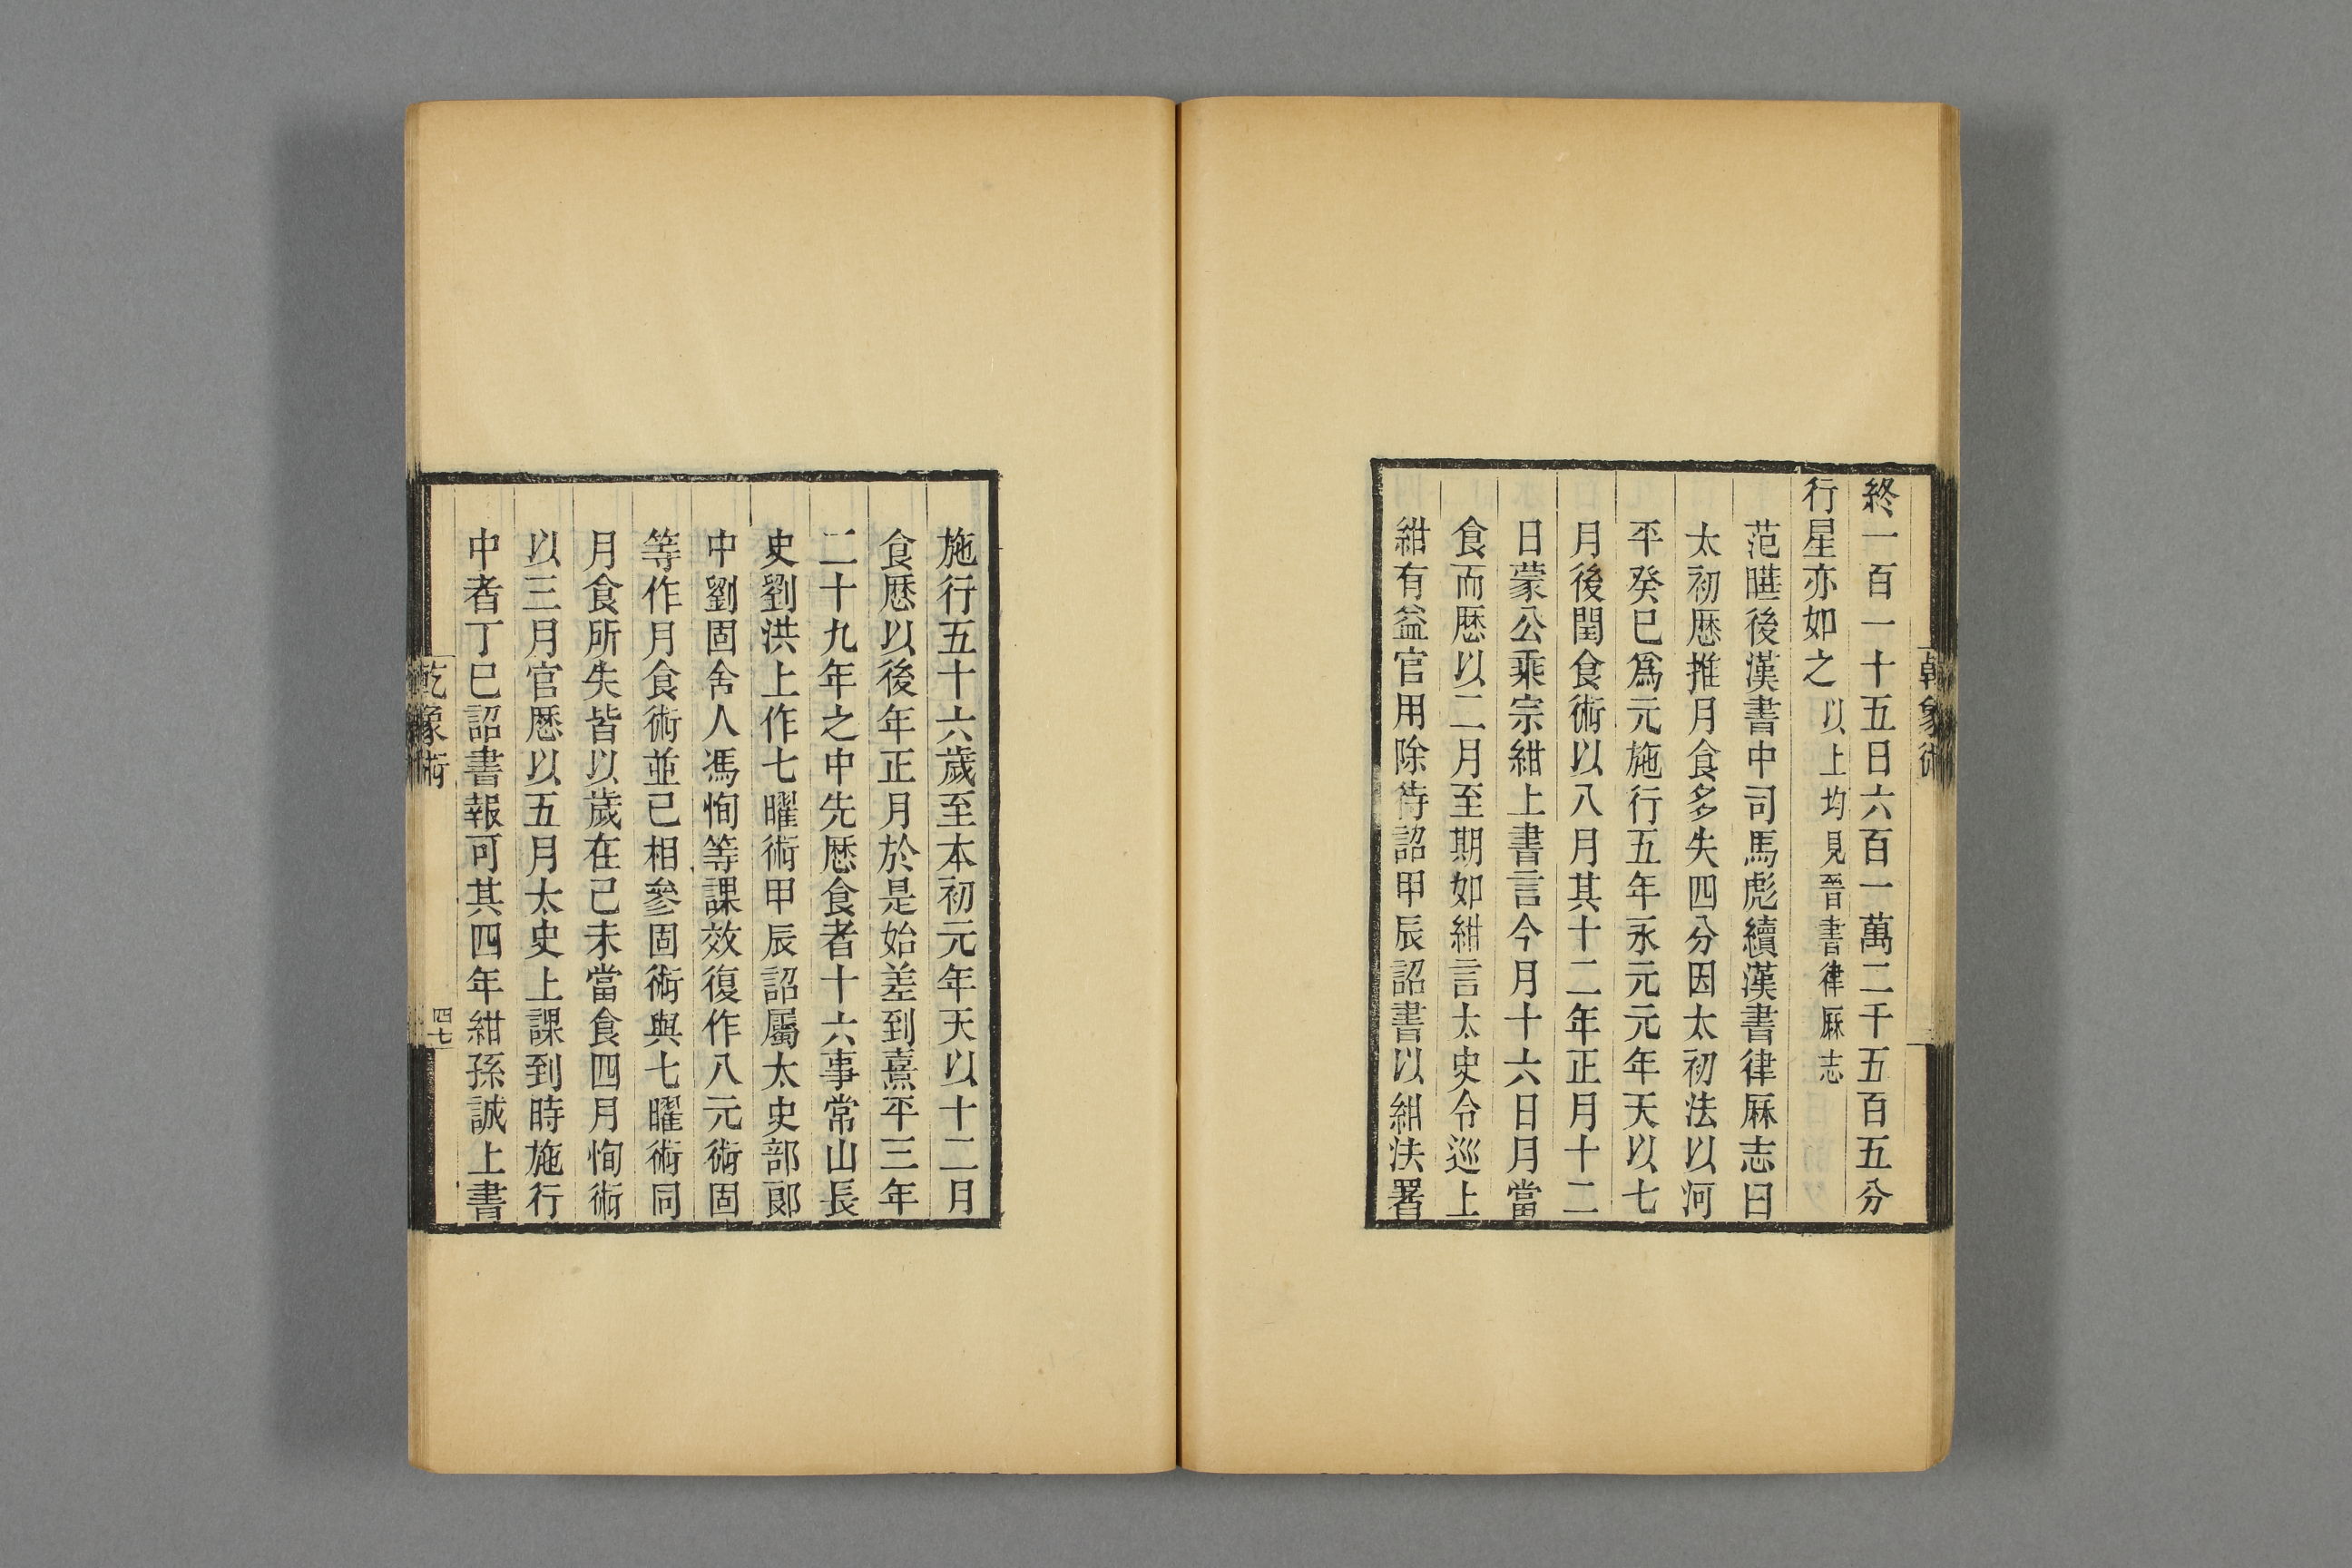 終一百一十五日六百一萬二千五百五分
行星亦如之以上均見晉書律厤志
范曄後漢書中司馬彪續漢書律厤志曰
太初厯推月食多失四分因太初法以河
平癸巳爲元施行五年永元元年天以七
月後閏食術以八月其十二年正月十二
日蒙公乘宗紺上書言今月十六日月當
食而厯以二月至期如紺言太史令巡上
紺有益官用除待詔甲辰詔書以紺法署
施行五十六歲至本初元年天以十二月
食厯以後年正月於是始差到熹平三年
二十九年之中先厯食者十六事常山長
史劉洪上作七曜術甲辰詔屬太史部郎
中劉固舍人馮恂等課效復作八元術固
等作月食術並已相參固術與七曜術同
月食所失皆以歲在己未當食四月恂術
以三月官厯以五月太史上課到時施行
中者丁巳詔書報可其四年紺孫誠上書
乾象術
四七